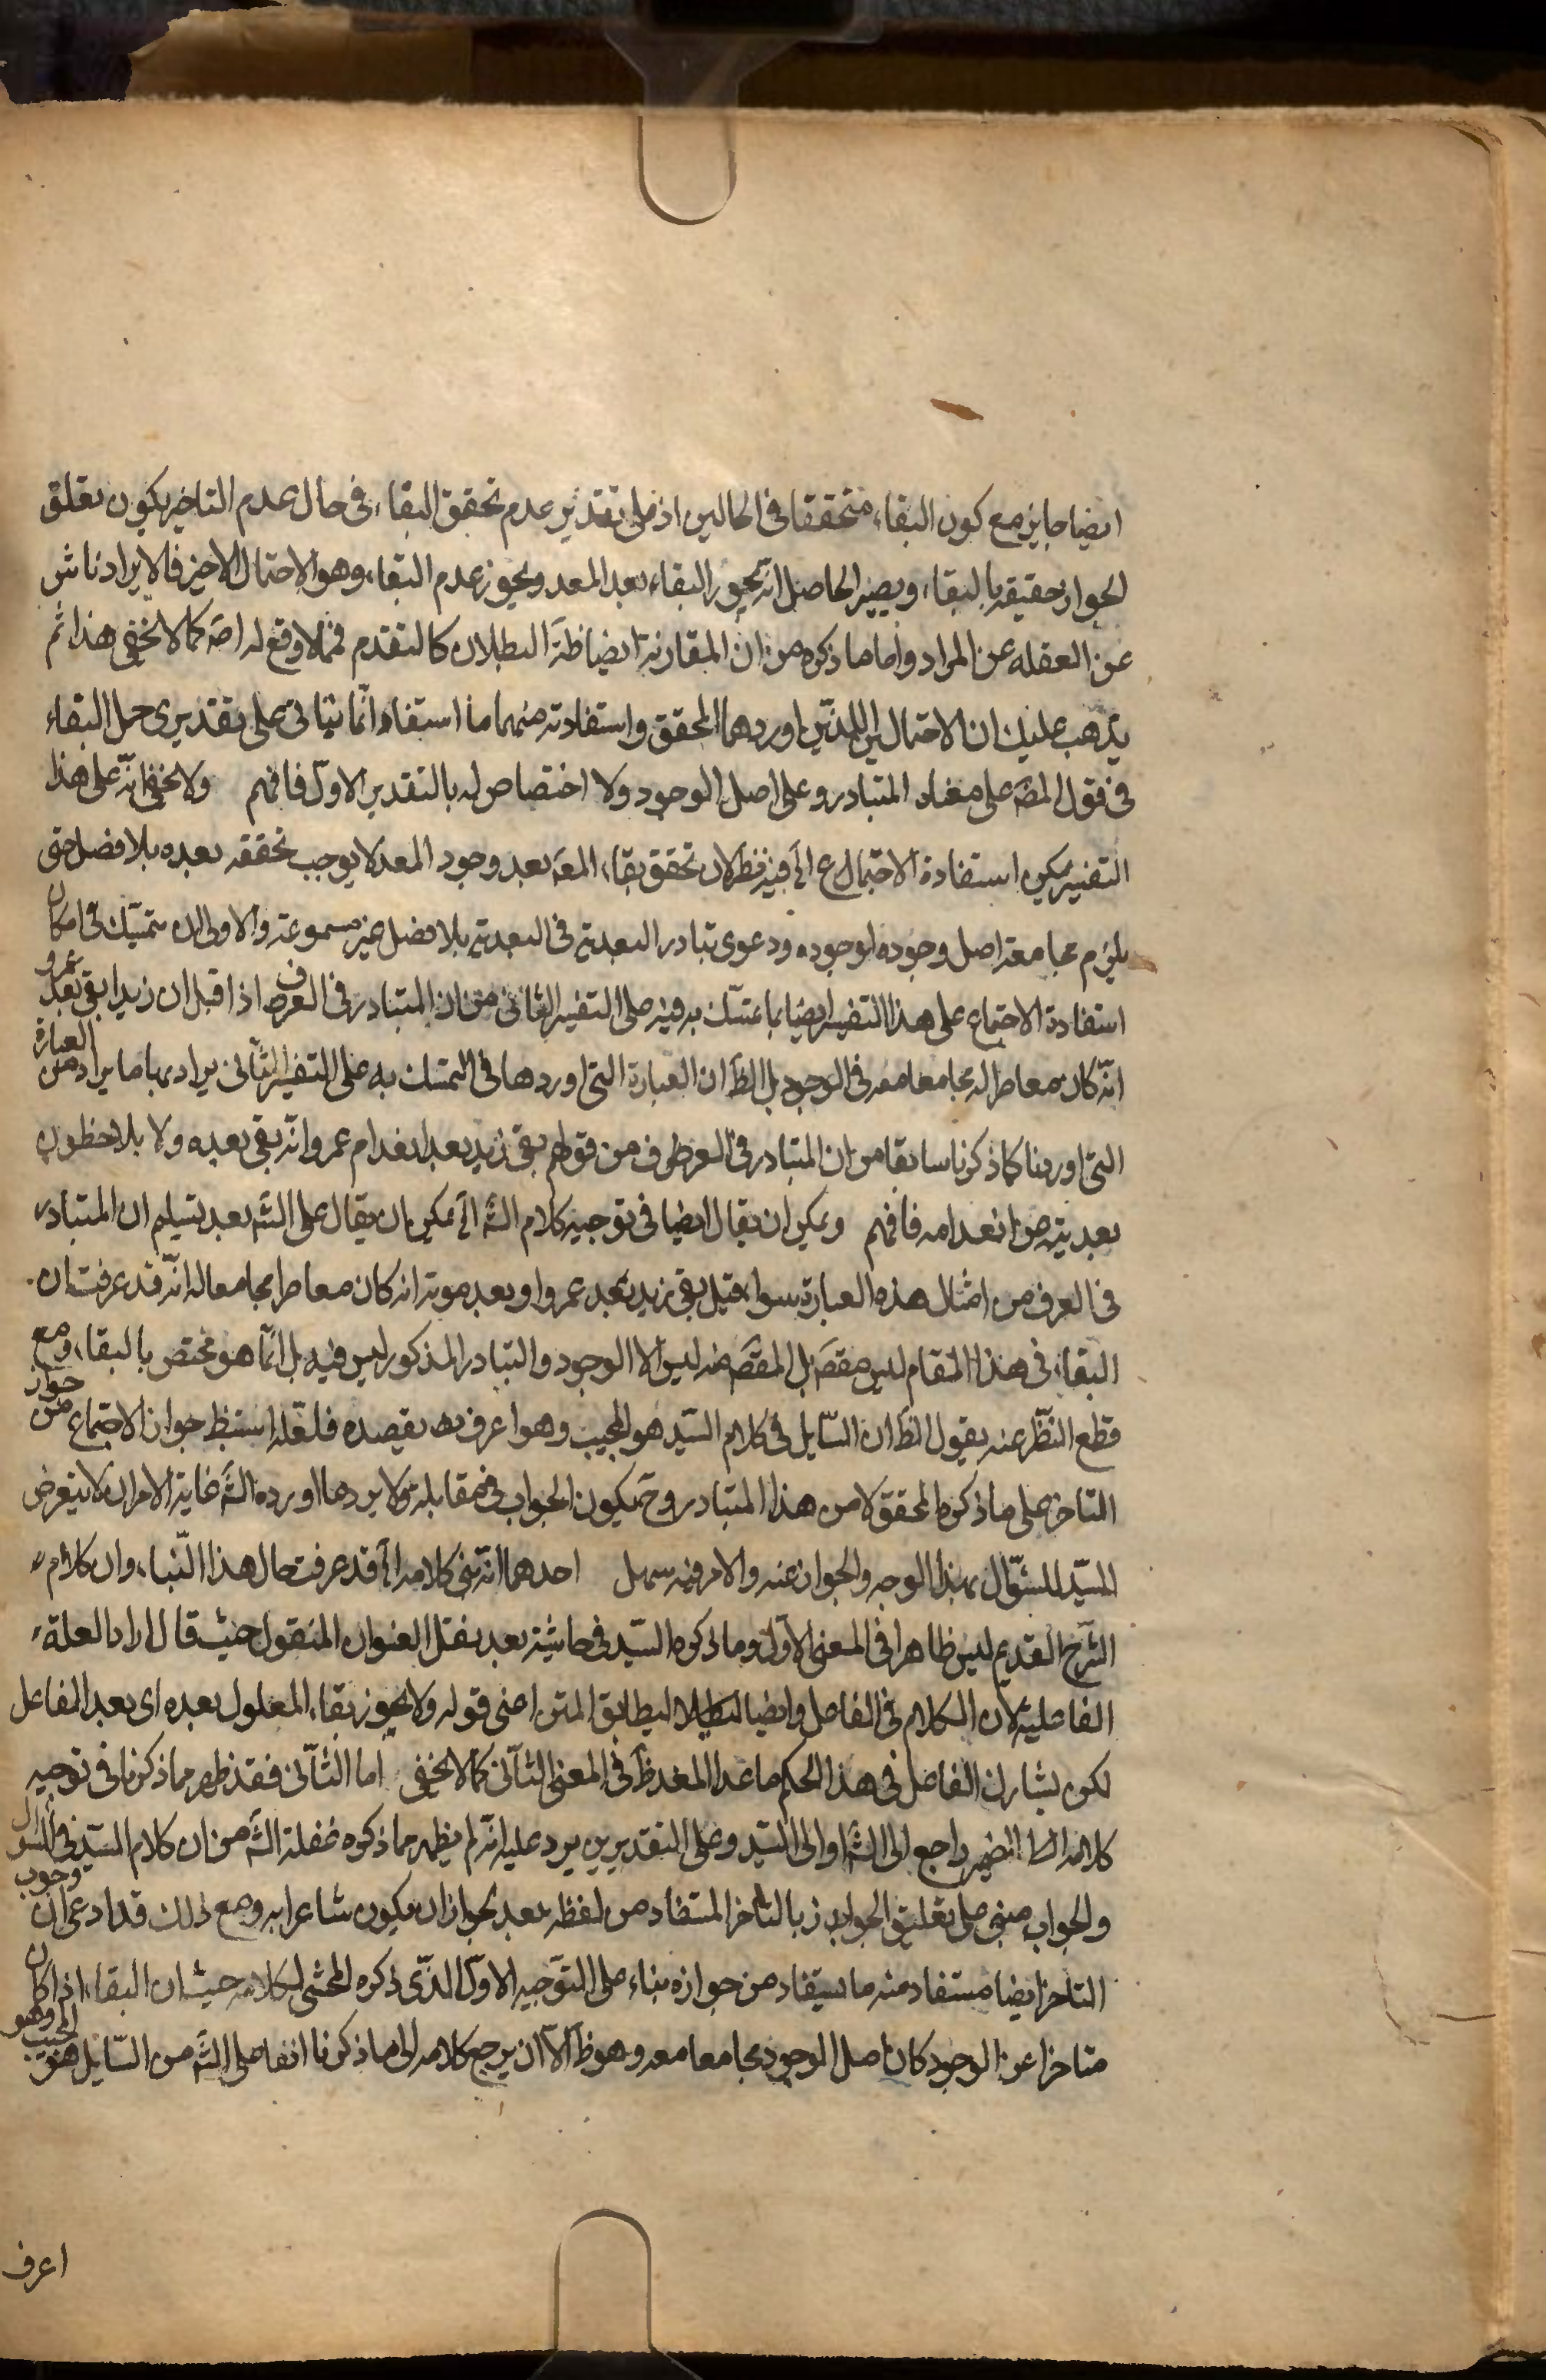 ايضا جايز مع كون البقاء متحققا في الحالين اذ على تقدير عدم تحقق البقاء في حال عدم التاخير يكون تعلق
الجواز حقيقة بالبقاء ويصير الحاصل انه يجوز البقاء بعد المعد ويجوز عدم البقاء وهو الاحتمال الاخير فالايراد ناش
عن الغفلة عن المراد واما ما ذكره من ان المقارنة ايضا ظة البطلان كالتقدم فمما لا وقع له اصَه كما لا يخفى هذا ثم
يذهب عليك ان الاحتمالين اللذين اوردهما المحقق واستفادته منهما ما استفاد انما يتاتى على تقديرى حمل البقاء
في قول المصَه على معناه المتبادر وعلى اصل الوجود ولا اختصاص له بالتقدير الاول فافهم ولا يخفى انه على هذا
التفسير يمكن استفادة الاحتمال ع الَخ فيه نظر لان تحقق بقاء المعَه بعد وجود المعد لا يوجب تحققه بعده بلا فصل حتى
يلزم مجامعة اصل وجوده لوجوده ودعوى تبادر البعدية في البعدية بلا فصل غير مسموعة والاولى ان يتمسك في امكان
استفادة الاجتماع على هذا التفسير ايضا بما يتمسك به فيه على التفسير الثاني من ان المتبادر في العرف اذا قيل ان زيدا بقى بعد عمرو
انه كان معاصرا له مجامعا معه في الوجود بل الظَ ان العبارة التي اوردها في التمسك به على التفسير الثاني يراد بها ما يراد من العبارة
التي اوردنا كما ذكرنا سابقا من ان المتبادر في العرف من قولهم بقى زيد بعد انعدام عمرو انه بقى بعده ولا يلاحظون
بعديته من انعدامه فافهم ويمكن ان يقال ايضا في توجيه كلام الشَه الَخ يمكن ان يقال على الشَه بعد تسليم ان المتبادر
في العرف من امثال هذه العبارة سواء قيل بقى زيد بعد عمرو او بعد موته انه كان معاصرا مجامعا له انه قد عرفت ان
البقاء في هذا المقام ليس مقصَه بل المقصَه منه ليس الا الوجود والتبادر المذكور ليس فيه بل انما هو مختص بالبقاء ومع
قطع النظر عنه يقول الظَ ان السايل في كلام السيد هو المجيب وهو اعرف بما يقصده فلعله استنبط جواز الاجتماع من جواز
التاخر على ما ذكره المحقق لا من هذا المتبادر وحَ يكون الجواب في مقابلته ولا يرد ما اورده الشَه غاية الامر ان لا يتعرض
السيد للسؤال بهذا الوجه والجواب عنه والامر فيه سهل احدهما انه نبى كلامه الَخ قد عرفت حال هذا البناء وان كلام
الشَرح القديم ليس ظاهرا في المعنى الاول وما ذكره السيد في حاشيته بعد نقل العنوان المنقول حيث قال اراد العلة
الفاعلية لان الكلام في الفاعل وايضا ليطابق المتن اعنى قوله ولا يجوز بقاء المعلول بعده اى بعد الفاعل
لكن يشارك الفاعل في هذا الحكم ما عدا المعد ظَ في المعنى الثاني كما لا يخفى اما الثاني فقد ظهر مما ذكرنا في توجيه
كلامه الَخ الضمير راجع الى الشَه او الى السيد وعلى التقديرين يرد عليه انه لم يظهر مما ذكره غفلة الشَه من ان كلام السيد في السؤال
والجواب مبنى على تعليق الجواز بالتاخر المستفاد من لفظه بعد لجواز ان يكون شاعرا به ومع ذلك قد ادعى ان وجوب
التاخر ايضا مستفاد منه ما يستفاد من جوازه بناء على التوجيه الاول الذى ذكره المحشى لكلامه حيث ان البقاء اذا كان
متاخرا عن الوجود كان اصل الوجود مجامعا معه وهو ظَ الا ان يرجع كلامه الى ما ذكرنا انفا على الشَه من السايل هو المجيب وهو
اعرف